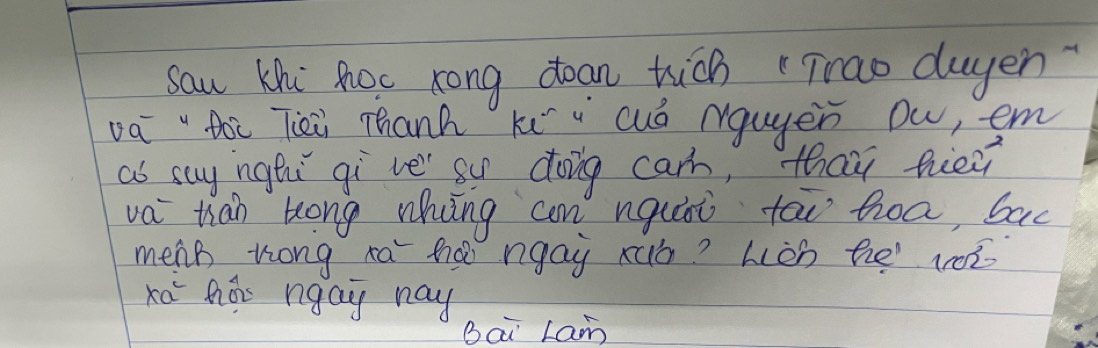 Sau khi học xong đoạn trích "Trao duyên"
và "Đọc Tiểu Thanh kí" của Nguyễn Du, em
có suy nghĩ gì về sự đồng cảm, thấu hiểu
và trân trọng những con người tài hoa, bạc
mệnh trong xã hội ngày xưa? Liên hệ với
xã hội ngày nay
Bài Làm